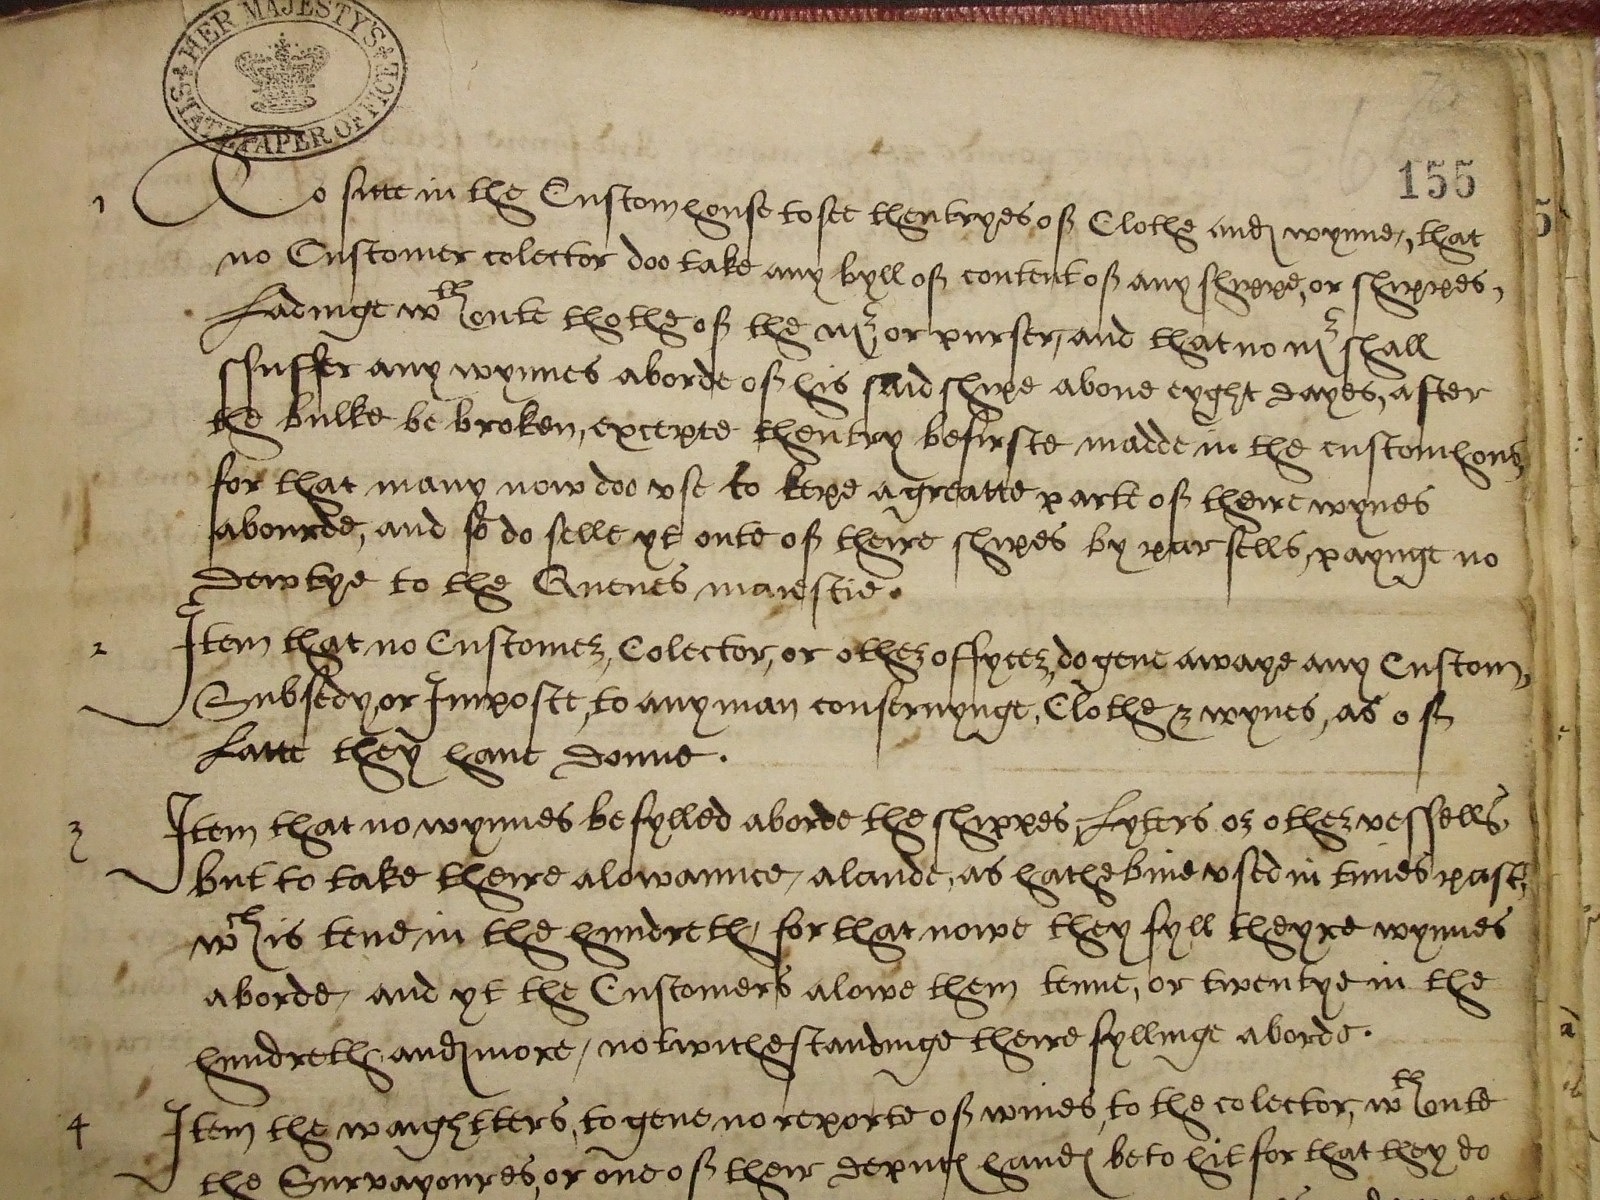 HER MAJESTY'S
STATE PAPER OFFICE
155
1 To sitte in the Customhouse to see thentryes of Clothe and wynne, that
no Customer colector doo take any byll of content of any shippe, or shippes
Ladinge wth oute thothe of the mr or purser, and that no mr shall
suffer any wynnes aborde of his said shipe above eyght dayes, after
the bulke be broken, excepte thentry be firste madde in the customhous
for that many now doo vse to kepe a greatte parte of theire wynes
abourde, and so do selle yt oute of theire shipes by parsells, payinge no
dewtye to the Quenes maiestie.
2 Item that no Customer, Colector, or other offycer, do geve awaye any Custom,
Subsedy, or Imposte, to any man consernynge, Clothe & wynes, as of
Latte they have donne.
3 Item that no wynnes be fylled aborde the shippes, Lyters or other vessells
but to take theire alowannce, alande, as hathe bine vsed in times past,
wch is tene in the hundreth, for that nowe they fyll theyre wynnes
aborde, and yt the Customers alowe them tenne, or twentye in the
hundreth, and more, notwithestandinge theire fyllinge aborde.
4 Item the waightters, to geve no reporte of wines, to the colector, wth oute
the Survayoures, or one of their deputes handes be to hit for that they do